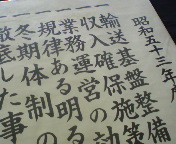 昭和五十三年
一輸送基盤整備
一収入確保施策
一業務運営の効
一規律ある明る
一冬期体制の
底した事